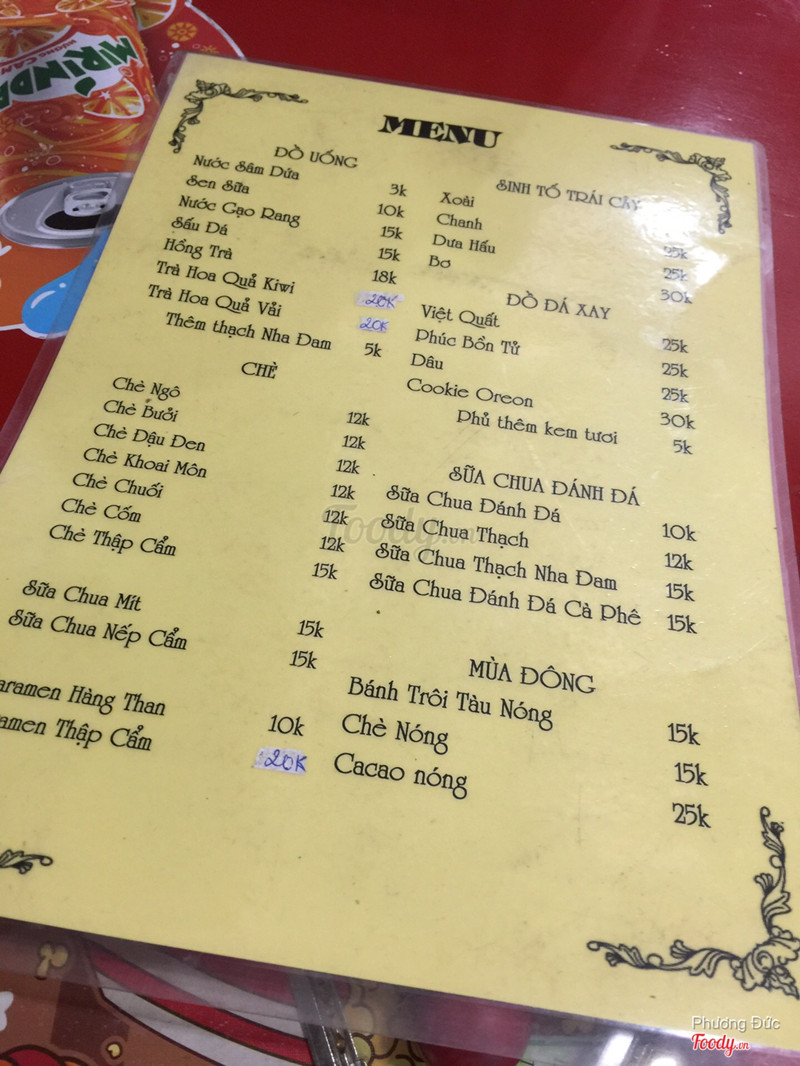 MIRINDA
HƯƠNG CAM
MENU
ĐỒ UỐNG
Nước Sâm Dứa 3k
Sen Sữa 10k
Nước Gạo Rang 15k
Sấu Đá 15k
Hồng Trà 18k
Trà Hoa Quả Kiwi 20K
Trà Hoa Quả Vải 20K
Thêm thạch Nha Đam 5k
CHÈ
Chè Ngô 12k
Chè Bưởi 12k
Chè Đậu Đen 12k
Chè Khoai Môn 12k
Chè Chuối 12k
Chè Cốm 12k
Chè Thập Cẩm 15k
Sữa Chua Mít 15k
Sữa Chua Nếp Cẩm 15k
aramen Hàng Than 10k
amen Thập Cẩm 20K
SINH TỐ TRÁI CÂY
Xoài
Chanh 25k
Dưa Hấu 25k
Bơ 30k
ĐỒ ĐÁ XAY
Việt Quất 25k
Phúc Bồn Tử 25k
Dâu 25k
Cookie Oreon 30k
Phủ thêm kem tươi 5k
SỮA CHUA ĐÁNH ĐÁ
Sữa Chua Đánh Đá 10k
Sữa Chua Thạch 12k
Sữa Chua Thạch Nha Đam 15k
Sữa Chua Đánh Đá Cà Phê 15k
MÙA ĐÔNG
Bánh Trôi Tàu Nóng 15k
Chè Nóng 15k
Cacao nóng 25k
Foody.vn
Phương Đức
Foody.vn